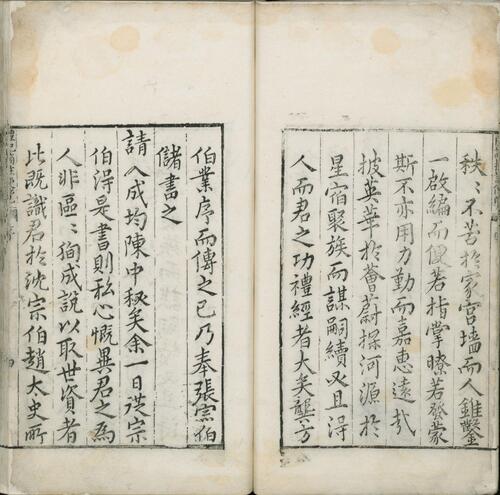 秩〻不苦於家宫墙而人錐鑿
一啟編而便若指掌瞭若發蒙
斯不亦用力勤而嘉惠遠哉
披英華於薈蔚探河源於
星宿聚族而謀嗣續又且得
人而君之功禮經者大矣龔方
伯業序而傳之已乃奉張宗伯
儲書之
請入成均陳中秘矣余一日從宗
伯得是書則私心慨異君之為
人非區〻狥成說以取世資者
比既識君於沈宗伯趙太史所